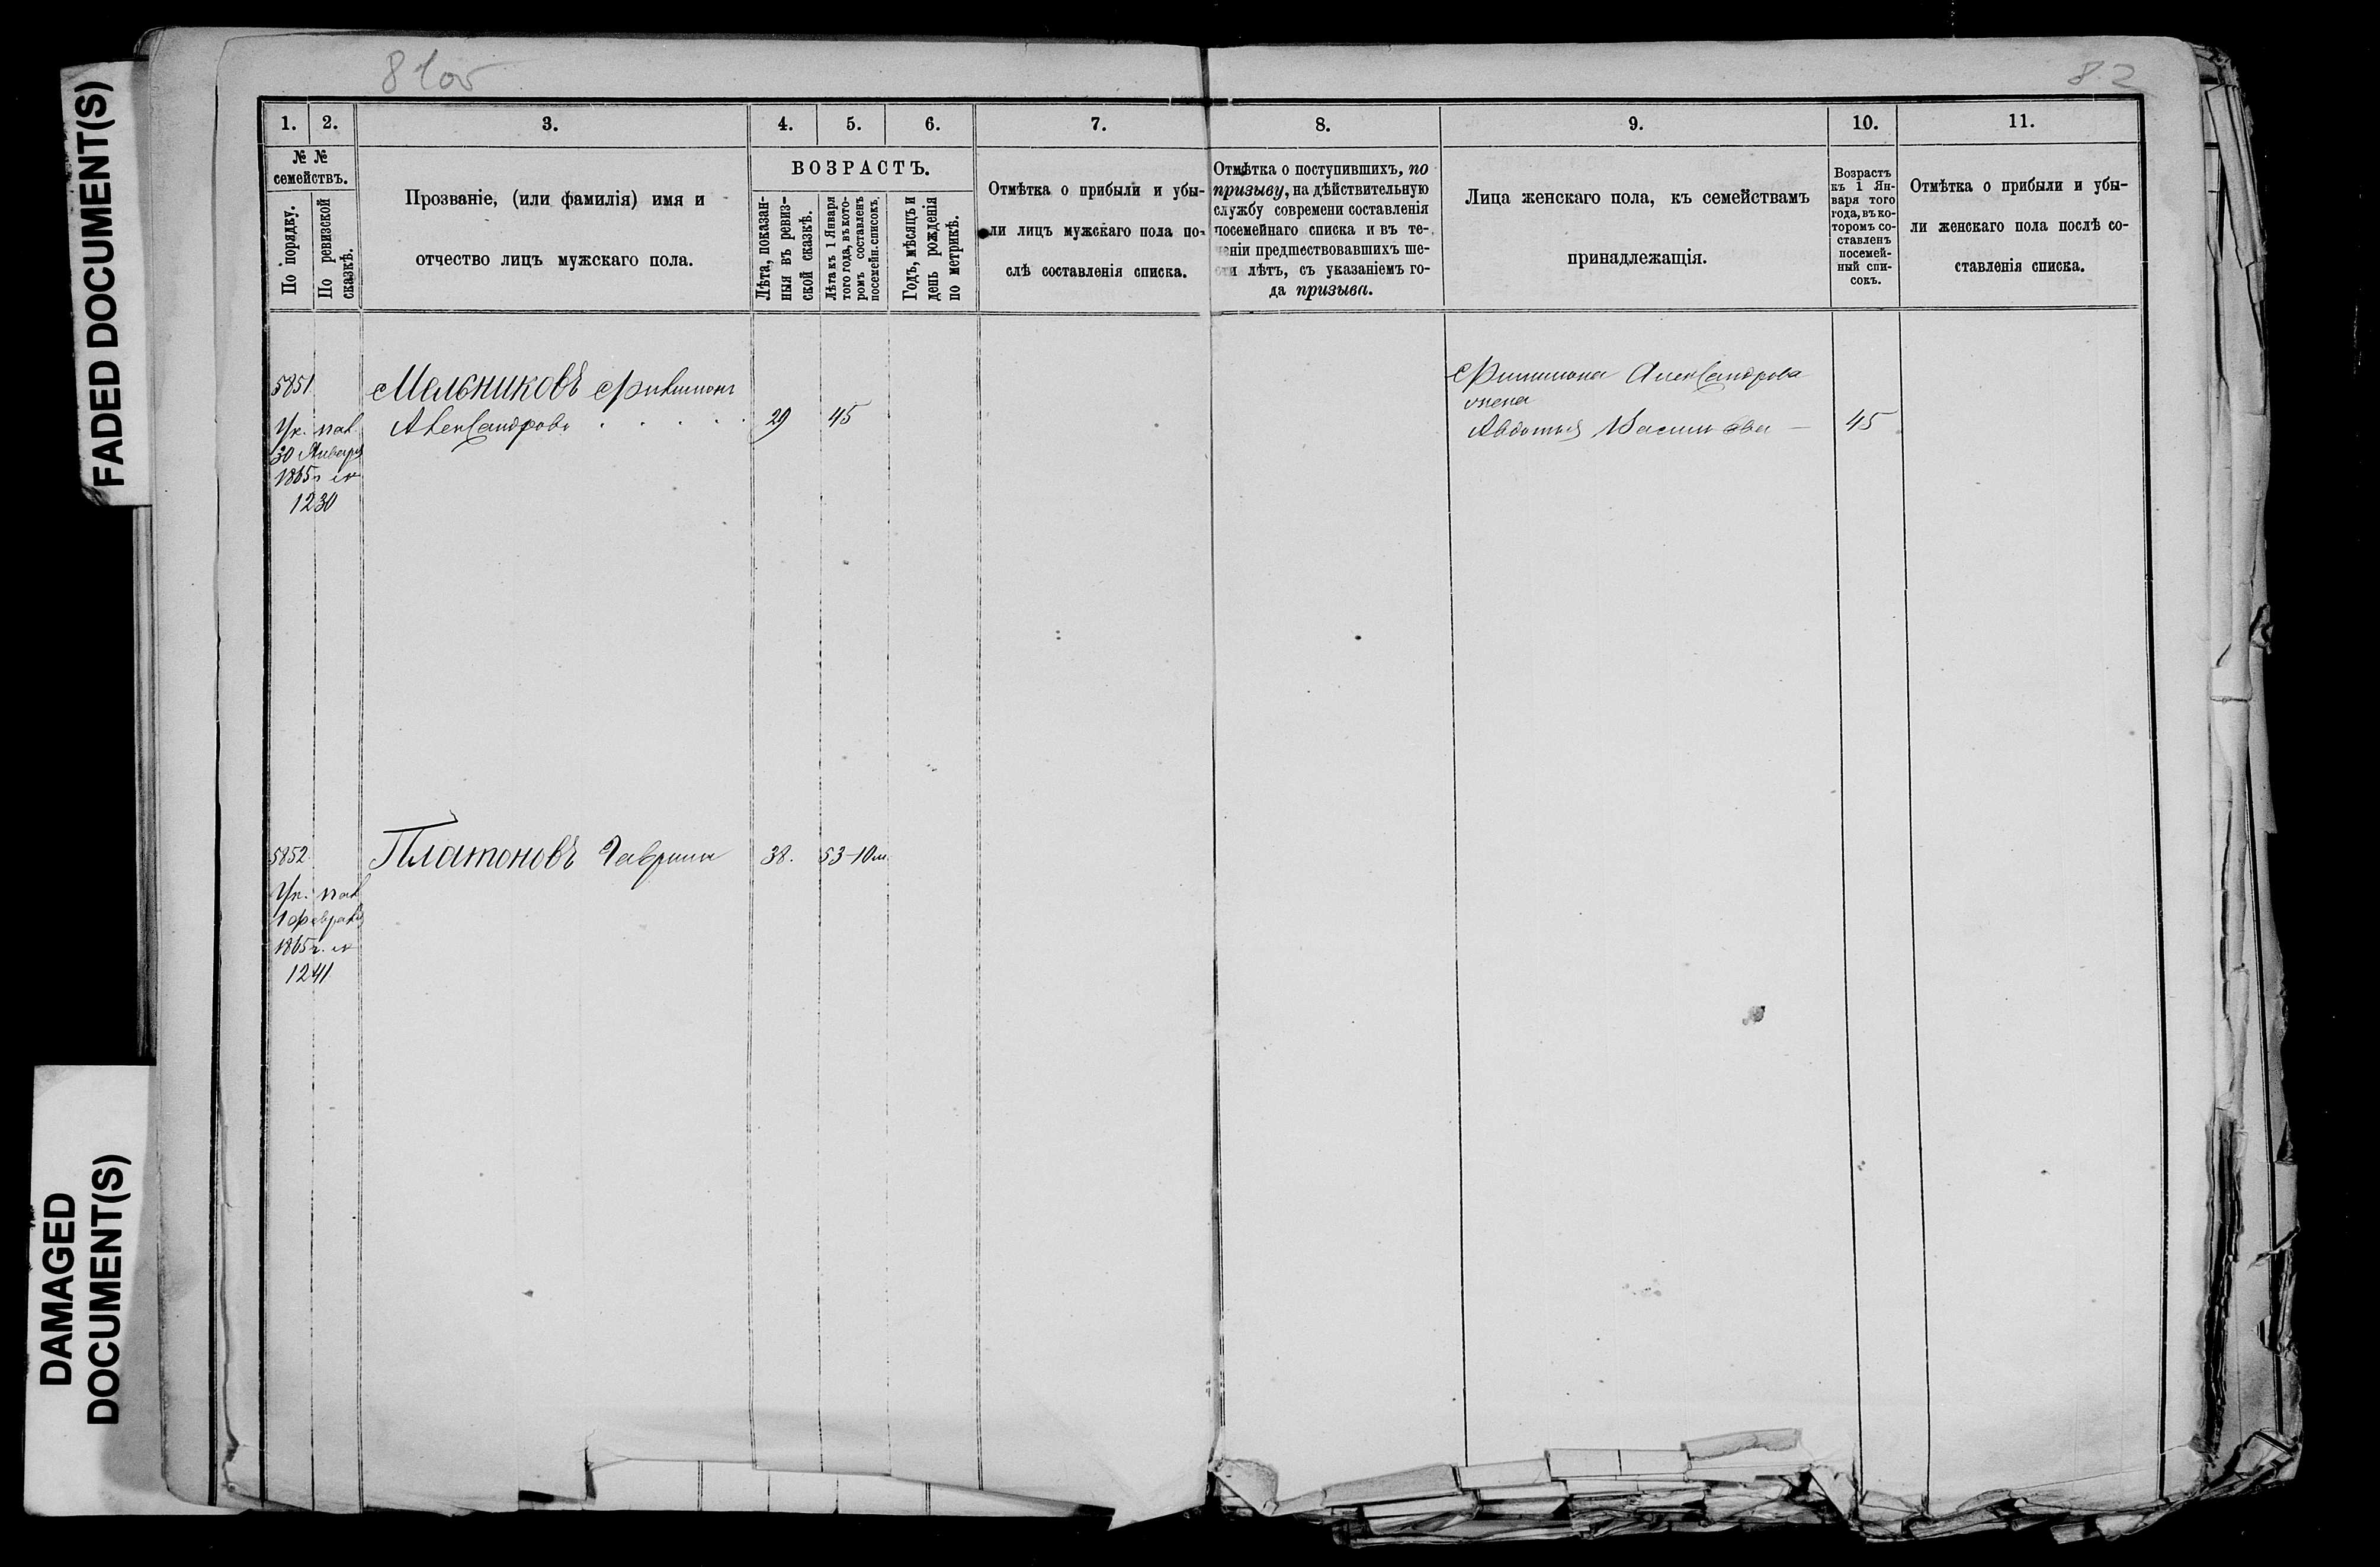 FADED DOCUMENT(S)
DAMAGED
DOCUMENT(S)
81об
82
1. 2. 3. 4. 5. 6. 7. 8. 9. 10. 11.
№ №
семействъ.
По порядку.
По ревизской
сказкѣ.
Прозваніе, (или фамилія) имя и
отчество лицъ мужскаго пола.
ВОЗРАСТЪ.
Лѣта, показан-
ныя въ ревиз-
ской сказкѣ.
Лѣта къ 1 Января
того года, въ кото-
ромъ составленъ
посемейн. списокъ.
Годъ, мѣсяцъ и
день рожденія
по метрикѣ.
Отмѣтка о прибыли и убы-
ли лицъ мужскаго пола по-
слѣ составленія списка.
Отмѣтка о поступившихъ, по
призыву, на дѣйствительную
службу современи составленія
посемейнаго списка и въ те-
ченіи предшествовавшихъ ше-
сти лѣтъ, съ указаніемъ го-
да призыва.
Лица женскаго пола, къ семействамъ
принадлежащія.
Возрастъ
къ 1 Ян-
варя того
года, въ ко-
торомъ со-
ставленъ
посемей-
ный спи-
сокъ.
Отмѣтка о прибыли и убы-
ли женскаго пола послѣ со-
ставленія списка.
5851. Мельниковъ Филимонъ
Александровъ . . . . . 29 45
Ук. пал.
30 Января
1865 г №
1230
Филимона Александрова
жена
Авдотья Васильева — 45
5852. Платоновъ Гаврила 38. 53-10 м
Ук. пал
1 февраля
1865 г. №
1241